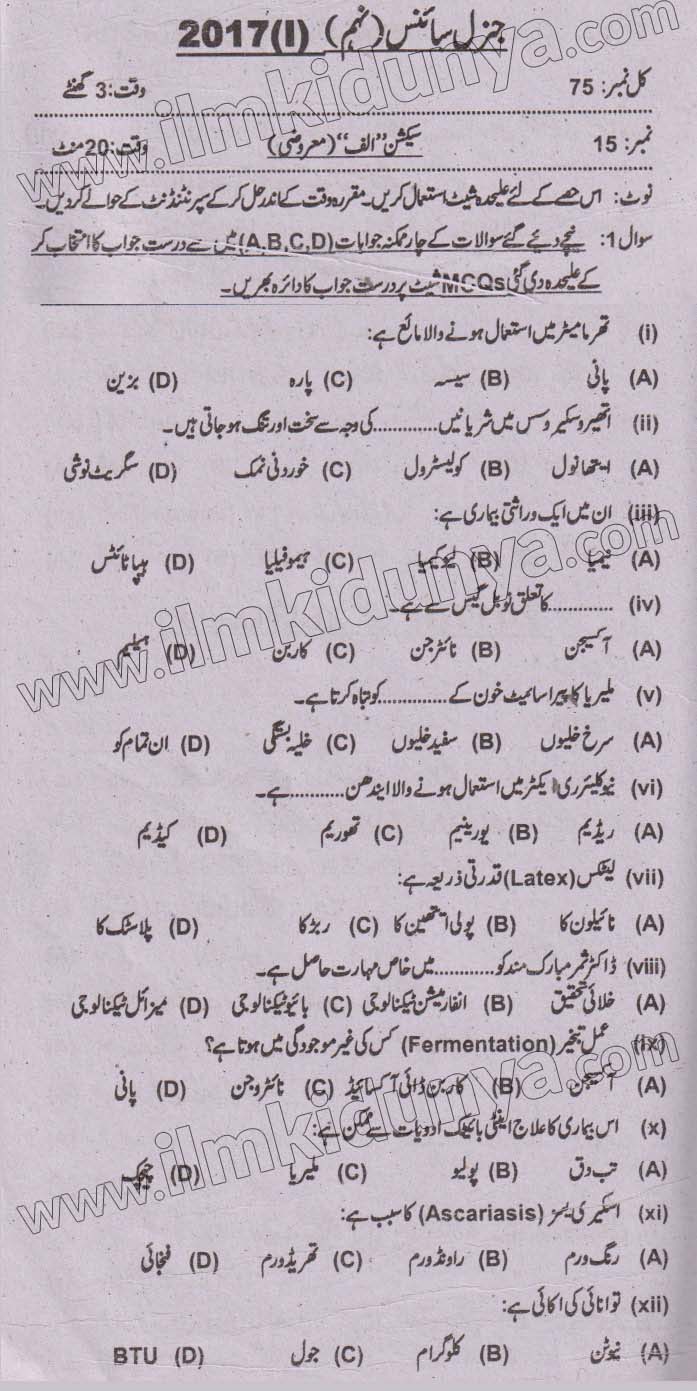 جنرل سائنس (نہم) 2017(I)
کل نمبر: 75 وقت: 3 گھنٹے
نمبر: 15 سیکشن "الف" (معروضی) وقت: 20 منٹ
نوٹ: اس حصے کے لئے علیحدہ شیٹ استعمال کریں۔ مقررہ وقت کے اندر حل کر کے سپرنٹنڈنٹ کے حوالے کردیں۔
سوال 1: نیچے دیئے گئے سوالات کے چار ممکنہ جوابات (A,B,C,D) میں سے درست جواب کا انتخاب کر
کے علیحدہ دی گئی MCQs شیٹ پر درست جواب کا دائرہ بھریں۔
(i) تھرمامیٹر میں استعمال ہونے والا مائع ہے:
(A) پانی (B) سیسہ (C) پارہ (D) بزین
(ii) اتھیروسکیروسس میں شریانیں............کی وجہ سے سخت اور تنگ ہوجاتی ہیں۔
(A) ایتھانول (B) کولیسٹرول (C) خوردنی نمک (D) سگریٹ نوشی
(iii) ان میں ایک وراثتی بیماری ہے:
(A) (B) لیوکیمیا (C) ہیموفیلیا (D) ہیپاٹائٹس
(iv) ............کا تعلق نوبل گیس سے ہے۔
(A) آکسیجن (B) نائٹرجن (C) کاربن (D) ہیلیم
(v) ملیریا کا پیراسائیٹ خون کے............کو تباہ کرتا ہے۔
(A) سرخ خلیوں (B) سفید خلیوں (C) خلیہ بستگی (D) ان تمام کو
(vi) نیوکلیئر ری ایکٹر میں استعمال ہونے والا ایندھن..........ہے۔
(A) ریڈیم (B) یورینیم (C) تھوریم (D) کیڈیم
(vii) لیٹکس (Latex) قدرتی ذریعہ ہے:
(A) نائیلون کا (B) پولی ایتھین کا (C) ربڑ کا (D) پلاسٹک کا
(viii) ڈاکٹر ثمر مبارک مند کو............میں خاص مہارت حاصل ہے۔
(A) خلائی تحقیق (B) انفارمیشن ٹیکنالوجی (C) بائیوٹیکنالوجی (D) میزائل ٹیکنالوجی
(ix) عمل تبخیر (Fermentation) کس کی غیر موجودگی میں ہوتا ہے؟
(A) آکسیجن (B) کاربن ڈائی آکسائیڈ (C) نائٹروجن (D) پانی
(x) اس بیماری کا علاج اینٹی بائیٹک ادویات سے ممکن ہے:
(A) تب دق (B) پولیو (C) ملیریا (D) چیچک
(xi) اسکیری یسز (Ascariasis) کا سبب ہے:
(A) رنگ ورم (B) راونڈ ورم (C) تھریڈ ورم (D) فنجائی
(xii) توانائی کی اکائی ہے:
(A) نیوٹن (B) کلوگرام (C) جول (D) BTU
www.ilmkidunya.com
www.ilmkidunya.com
www.ilmkidunya.com